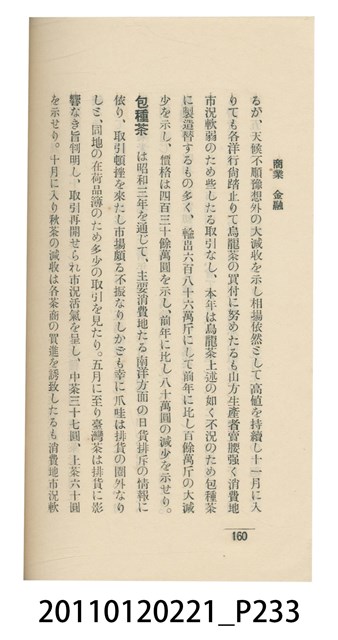 商業　金融
るが、天候不順豫想外の大減收を示し相場依然として高値を持續し十一月に入
りても各洋行尙踏止りて烏龍茶の買付に努めたるも山方生產者賣腰强く消費地
市況軟弱のため些したる取引なし、本年は烏龍茶上述の如く不況のため包種茶
に製造替するもの多く、輸出六百八十六萬斤にして前年に比し百餘萬斤の大減
少を示し、價格は四百三十餘萬圓を示し、前年に比し八十萬圓の減少を示せり。
包種茶　は昭和三年を通じて、主要消費地たる南洋方面の日貨排斥の情報に
依り、取引頓挫を來たし市場頗る不振なりしかども幸に爪哇は排貨の圈外なり
しと、同地の在荷品薄のため多少の取引を見たり。五月に至り臺灣茶は排貨に影
響なき旨判明し、取引再開せられ市況活氣を呈し、中茶三十七圓、上茶六十圓
を示せり。十月に入り秋茶の減收は各茶商の買進を誘致したるも消費地市況軟
160
20110120221_P233